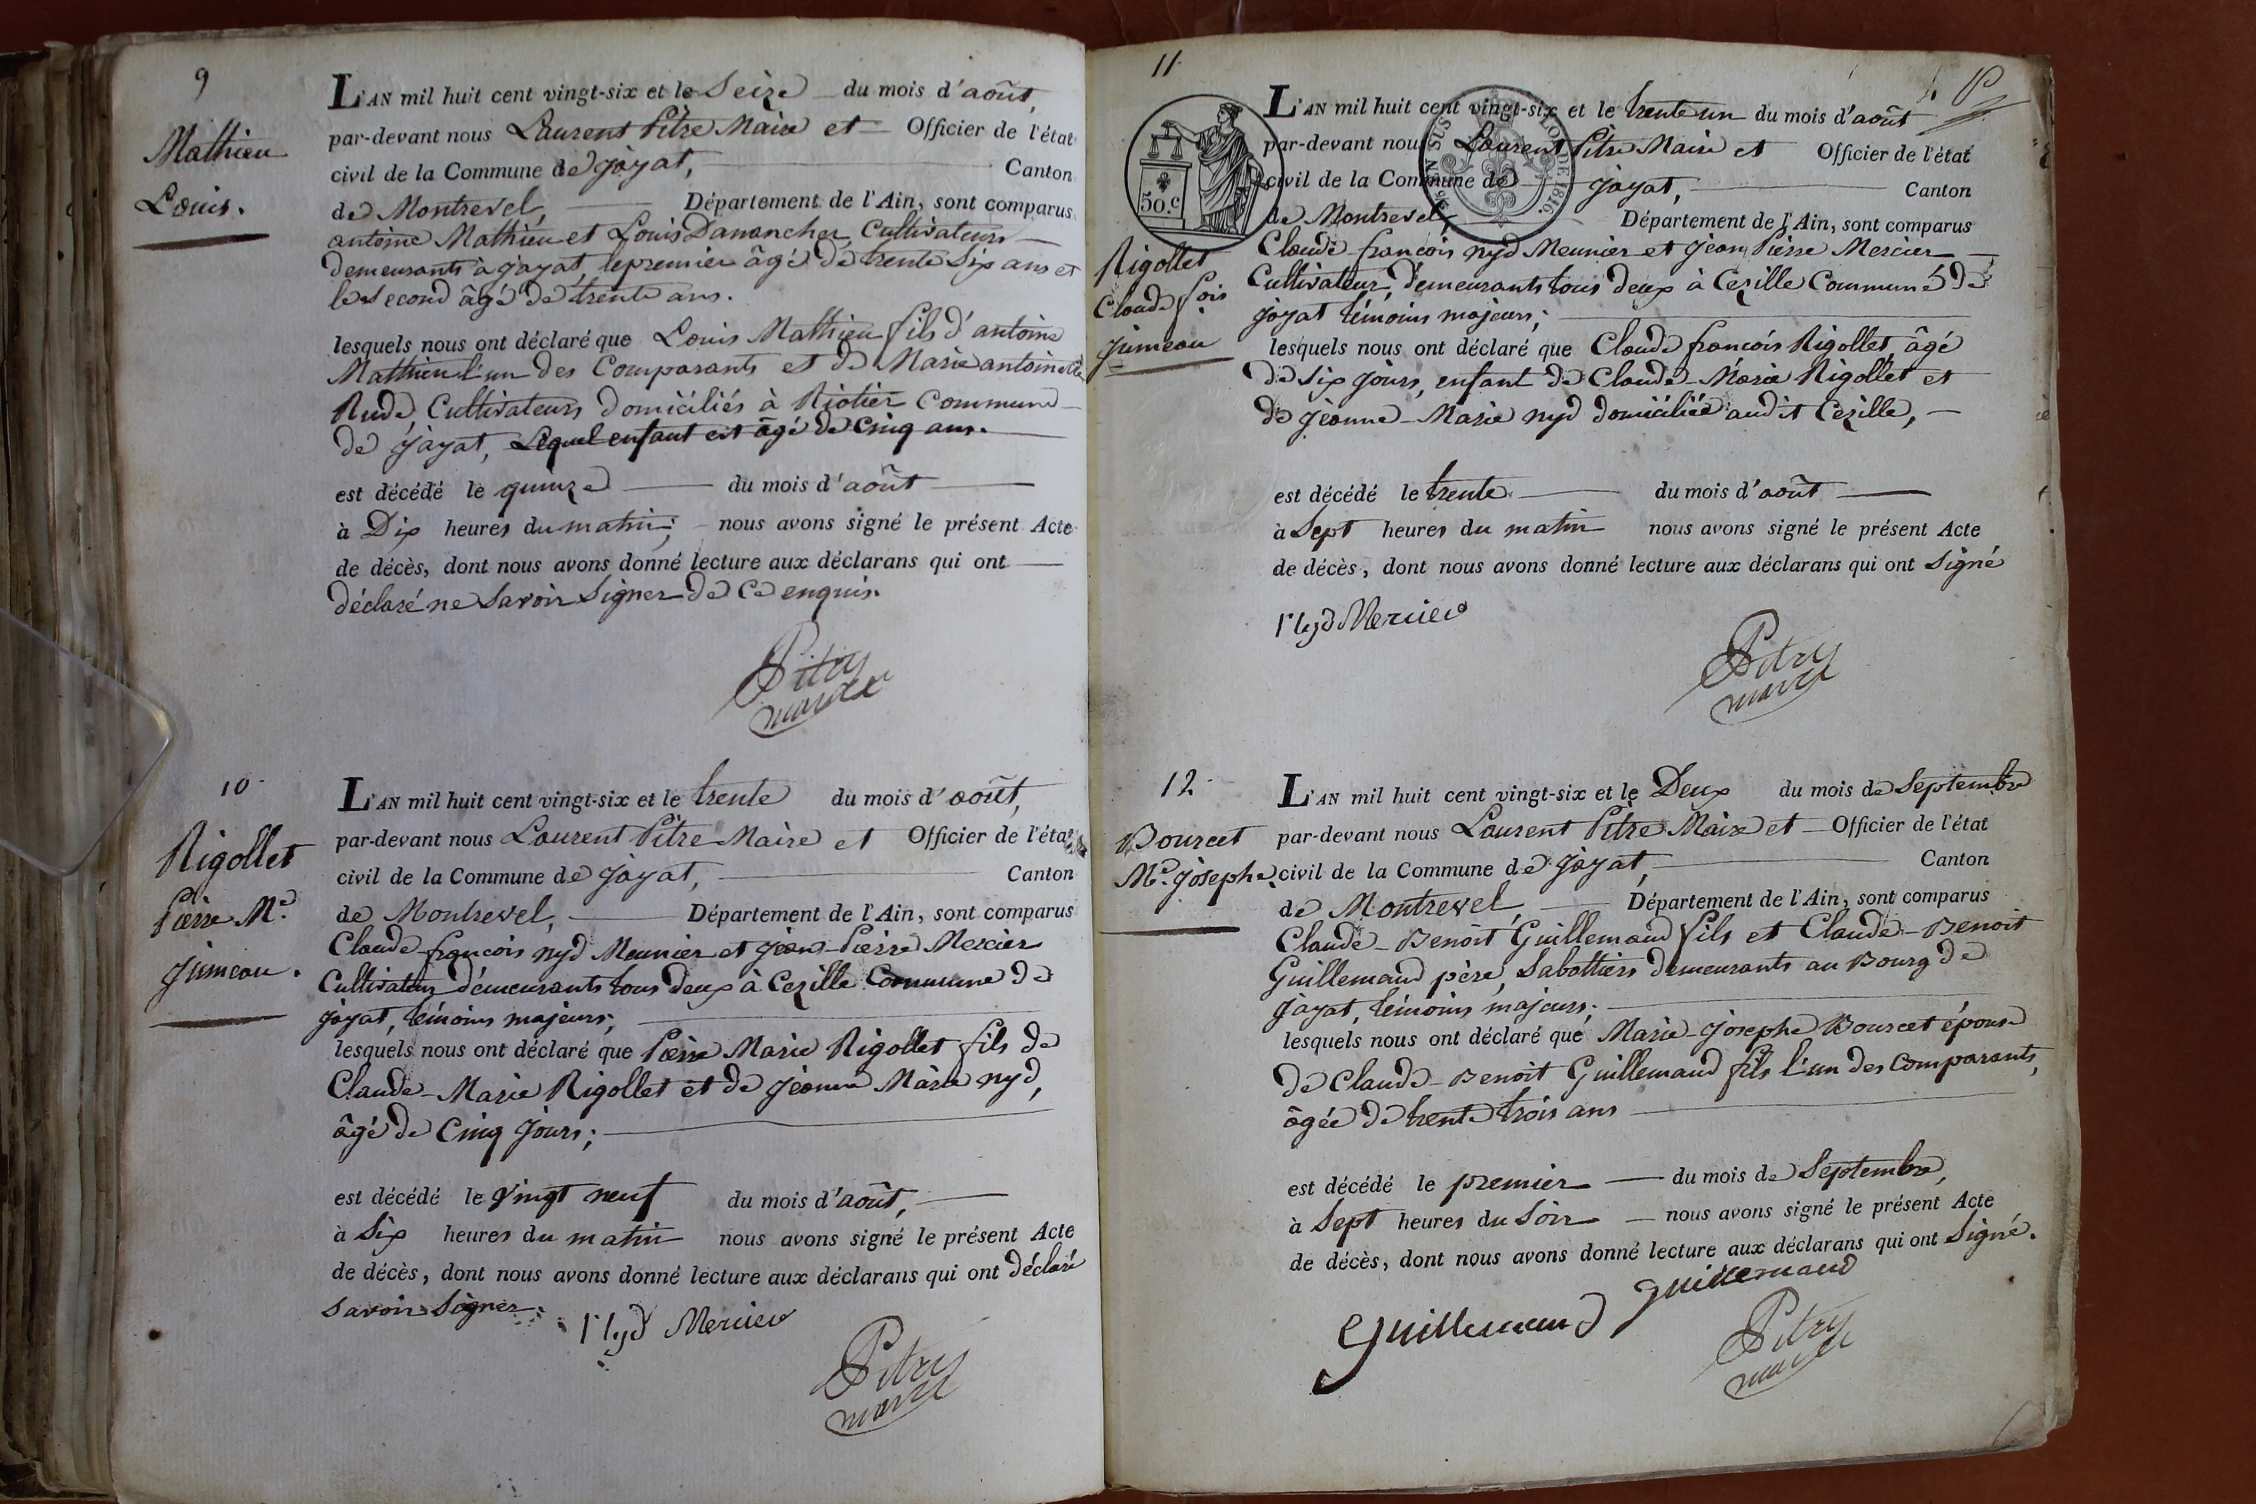 9
Mathieu
Louis.
L'AN mil huit cent vingt-six et le Seize du mois d'août,
par-devant nous Laurent Pitre Maire et Officier de l'état
civil de la Commune de jayat, Canton
de Montrevel, Département de l'Ain, sont comparus
antoine Mathieu et Louis Danancher, Cultivateurs
demeurants à jayat, le premier âgé de trente six ans et
le second âgé de trente ans.
lesquels nous ont déclaré que Louis Mathieu fils d'antoine
Mathieu l'un des Comparants et de Marie antoinette
Rude, Cultivateurs domiciliés à Riotier Commune
de jayat, Lequel enfant est âgé de Cinq ans.
est décédé le quinze du mois d'août
à Dix heures du matin; nous avons signé le présent Acte
de décès, dont nous avons donné lecture aux déclarans qui ont
déclaré ne Savoir Signer de Ce enquis.
Pitre
maire
10
Rigollet
Pierre Me.
jumeau.
L'AN mil huit cent vingt-six et le trente du mois d'août,
par-devant nous Laurent Pitre Maire et Officier de l'état
civil de la Commune de jayat, Canton
de Montrevel, Département de l'Ain, sont comparus
Claude-francois nyd Meunier et jean-Pierre Mercier
Cultivateur demeurants tous deux à Cezille Commune de
jayat, témoins majeurs;
lesquels nous ont déclaré que Pierre Marie Rigollet fils de
Claude-Marie Rigollet et de jeanne Marie nyd,
âgé de Cinq jours;
est décédé le vingt neuf du mois d'août,
à Six heures du matin nous avons signé le présent Acte
de décès, dont nous avons donné lecture aux déclarans qui ont déclaré
Savoir Signer.
nyd Mercier
Pitre
maire
11.
50.c
LOI DE 1816.
Rigollet
Claude fois
jumeau
L'AN mil huit cent vingt-six et le trente un du mois d'août
par-devant nous Laurent Pitre Maire et Officier de l'état
civil de la Commune de jayat, Canton
de Montrevel, Département de l'Ain, sont comparus
Claude-francois nyd Meunier et jean Pierre Mercier
Cultivateur, demeurants tous deux à Cezille Commune de
jayat témoins majeurs;
lesquels nous ont déclaré que Claude francois Rigollet, âgé
de Six jours, enfant de Claude-Marie Rigollet et
de jeanne-Marie nyd domiciliés audit Cezille,
est décédé le trente du mois d'août
à Sept heures du matin nous avons signé le présent Acte
de décès, dont nous avons donné lecture aux déclarans qui ont Signé
nyd Mercier
Pitre
maire
12.
Bourcet
Me. josephe.
L'AN mil huit cent vingt-six et le Deux du mois de Septembre
par-devant nous Laurent Pitre Maire et Officier de l'état
civil de la Commune de jayat, Canton
de Montrevel, Département de l'Ain, sont comparus
Claude-Benoit Guillemaud fils et Claude-Benoit
Guillemaud père, Sabottiers demeurants au Bourg de
jayat, témoins majeurs;
lesquels nous ont déclaré que Marie-josephe Bourcet épouse
de Claude-Benoit Guillemaud fils l'un des Comparants,
âgée de trente trois ans
est décédé le premier du mois de Septembre,
à Sept heures du Soir nous avons signé le présent Acte
de décès, dont nous avons donné lecture aux déclarans qui ont Signé.
guillemaud
guillemaud
Pitre
maire